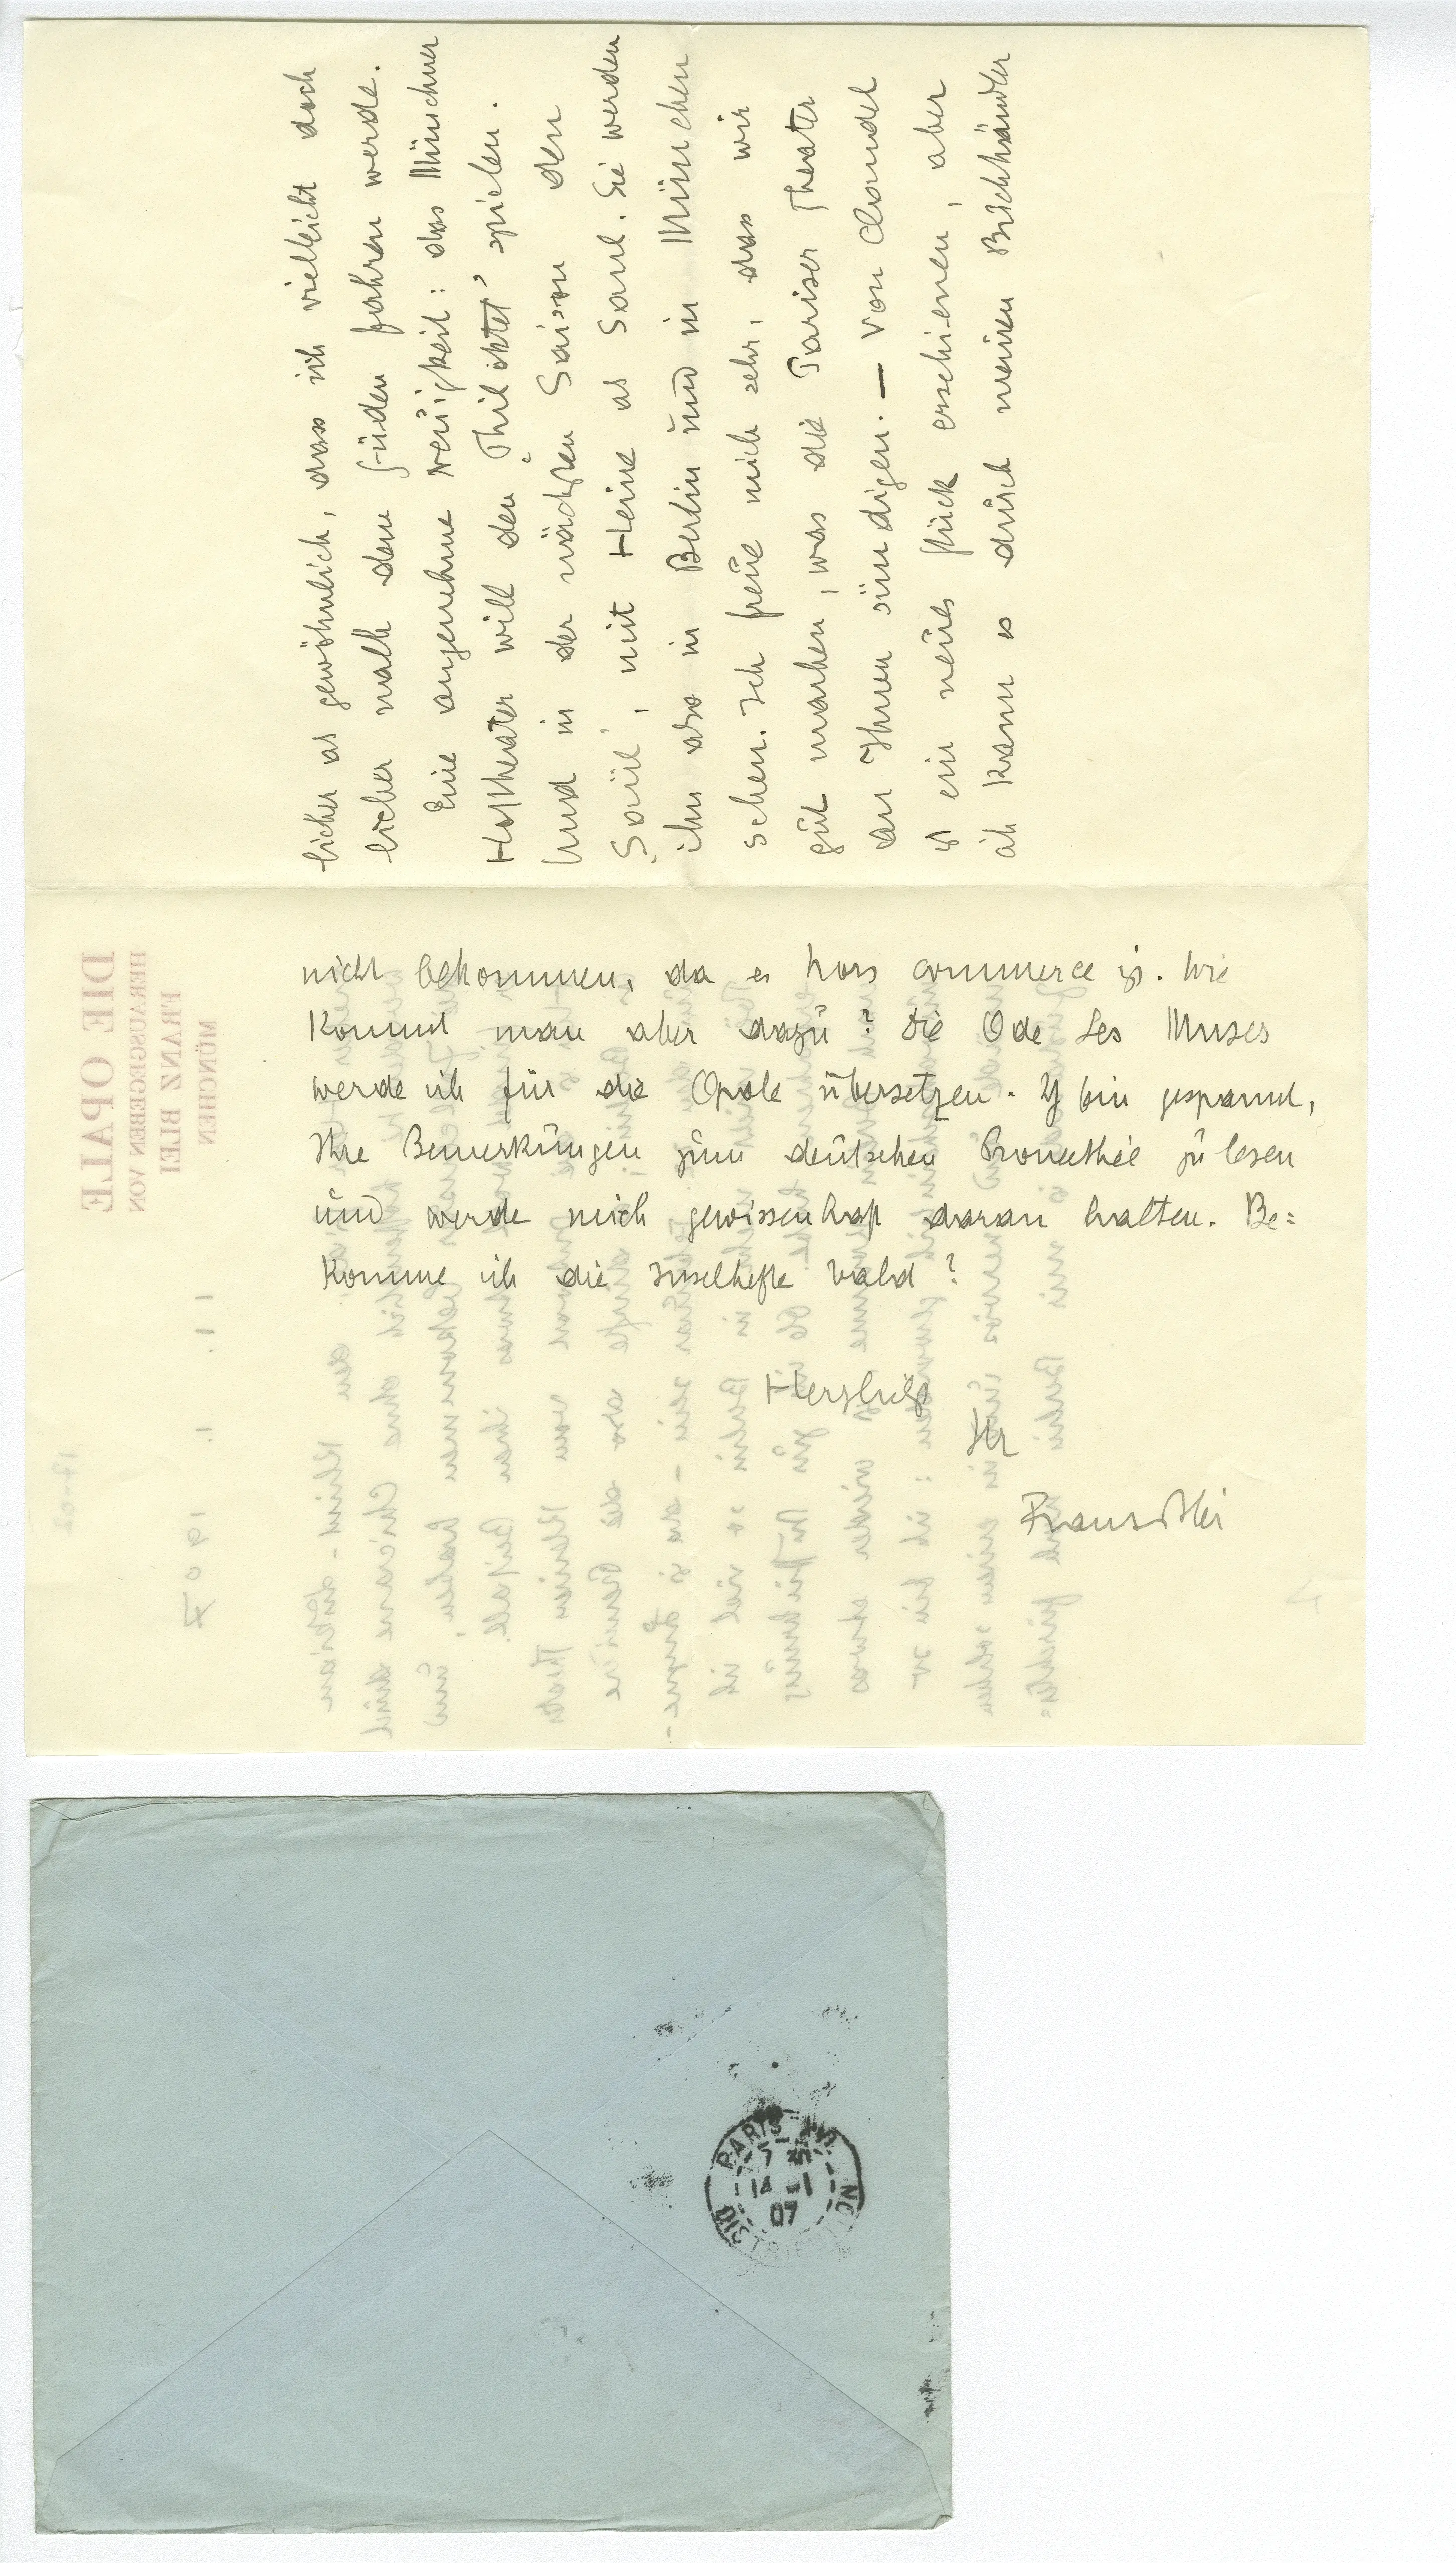 licher als gewöhnlich, dass ich vielleicht doch
licher nach dem Süden fahren werde.
Eine angenehme Neuigkeit: das Münchner
Hoftheater will den „Philoktet" spielen.
Und in der nächsten Saison den
„Saül", mit Heine als Saul. Sie werden
ihn also in Berlin und in München
sehen. Ich freue mich sehr, dass wir
gut machen, was die Pariser Theater
an Ihnen sündigen. — Von Claudel
ist ein neues Stück erschienen, aber
ich kann es durch meinen Buchhändler
nicht bekommen, da es hors commerce ist. Wie
kommt man aber dazu? Die Ode Les Muses
werde ich für die Opale übersetzen. Ich bin gespannt,
Ihre Bemerkungen zum deutschen Prométhée zu lesen
und werde mich gewissenhaft daran halten. Be=
komme ich die Inselhefte bald?
Herzlichst
Ihr
Franz Blei
DIE OPALE
HERAUSGEGEBEN VON
FRANZ BLEI
MÜNCHEN
11. 1. 1907
PARIS
7
14 - 1
07
DISTRIBUTION